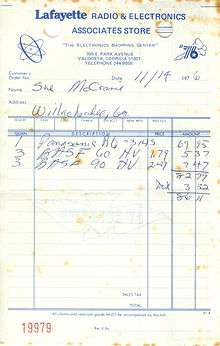 Lafayette RADIO & ELECTRONICS
ASSOCIATES STORE
"THE ELECTRONICS SHOPPING CENTER"
PARK AVENUE
VALDOSTA, GEORGIA 31601
TELEPHONE
'76
Customer's
Order No.
Date 11/14 197
Name Sue McCrane
Address
Willacoochee, Ga
DESCRIPTION PRICE AMOUNT
1 Panasonic 69 95
3 BASF 60 MV 1.79 5 37
3 BASF 90 2.49 7 47
82 79
3 32
86 11
SALES TAX
TOTAL
All claims and returned goods MUST be accompanied by this bill.
19979